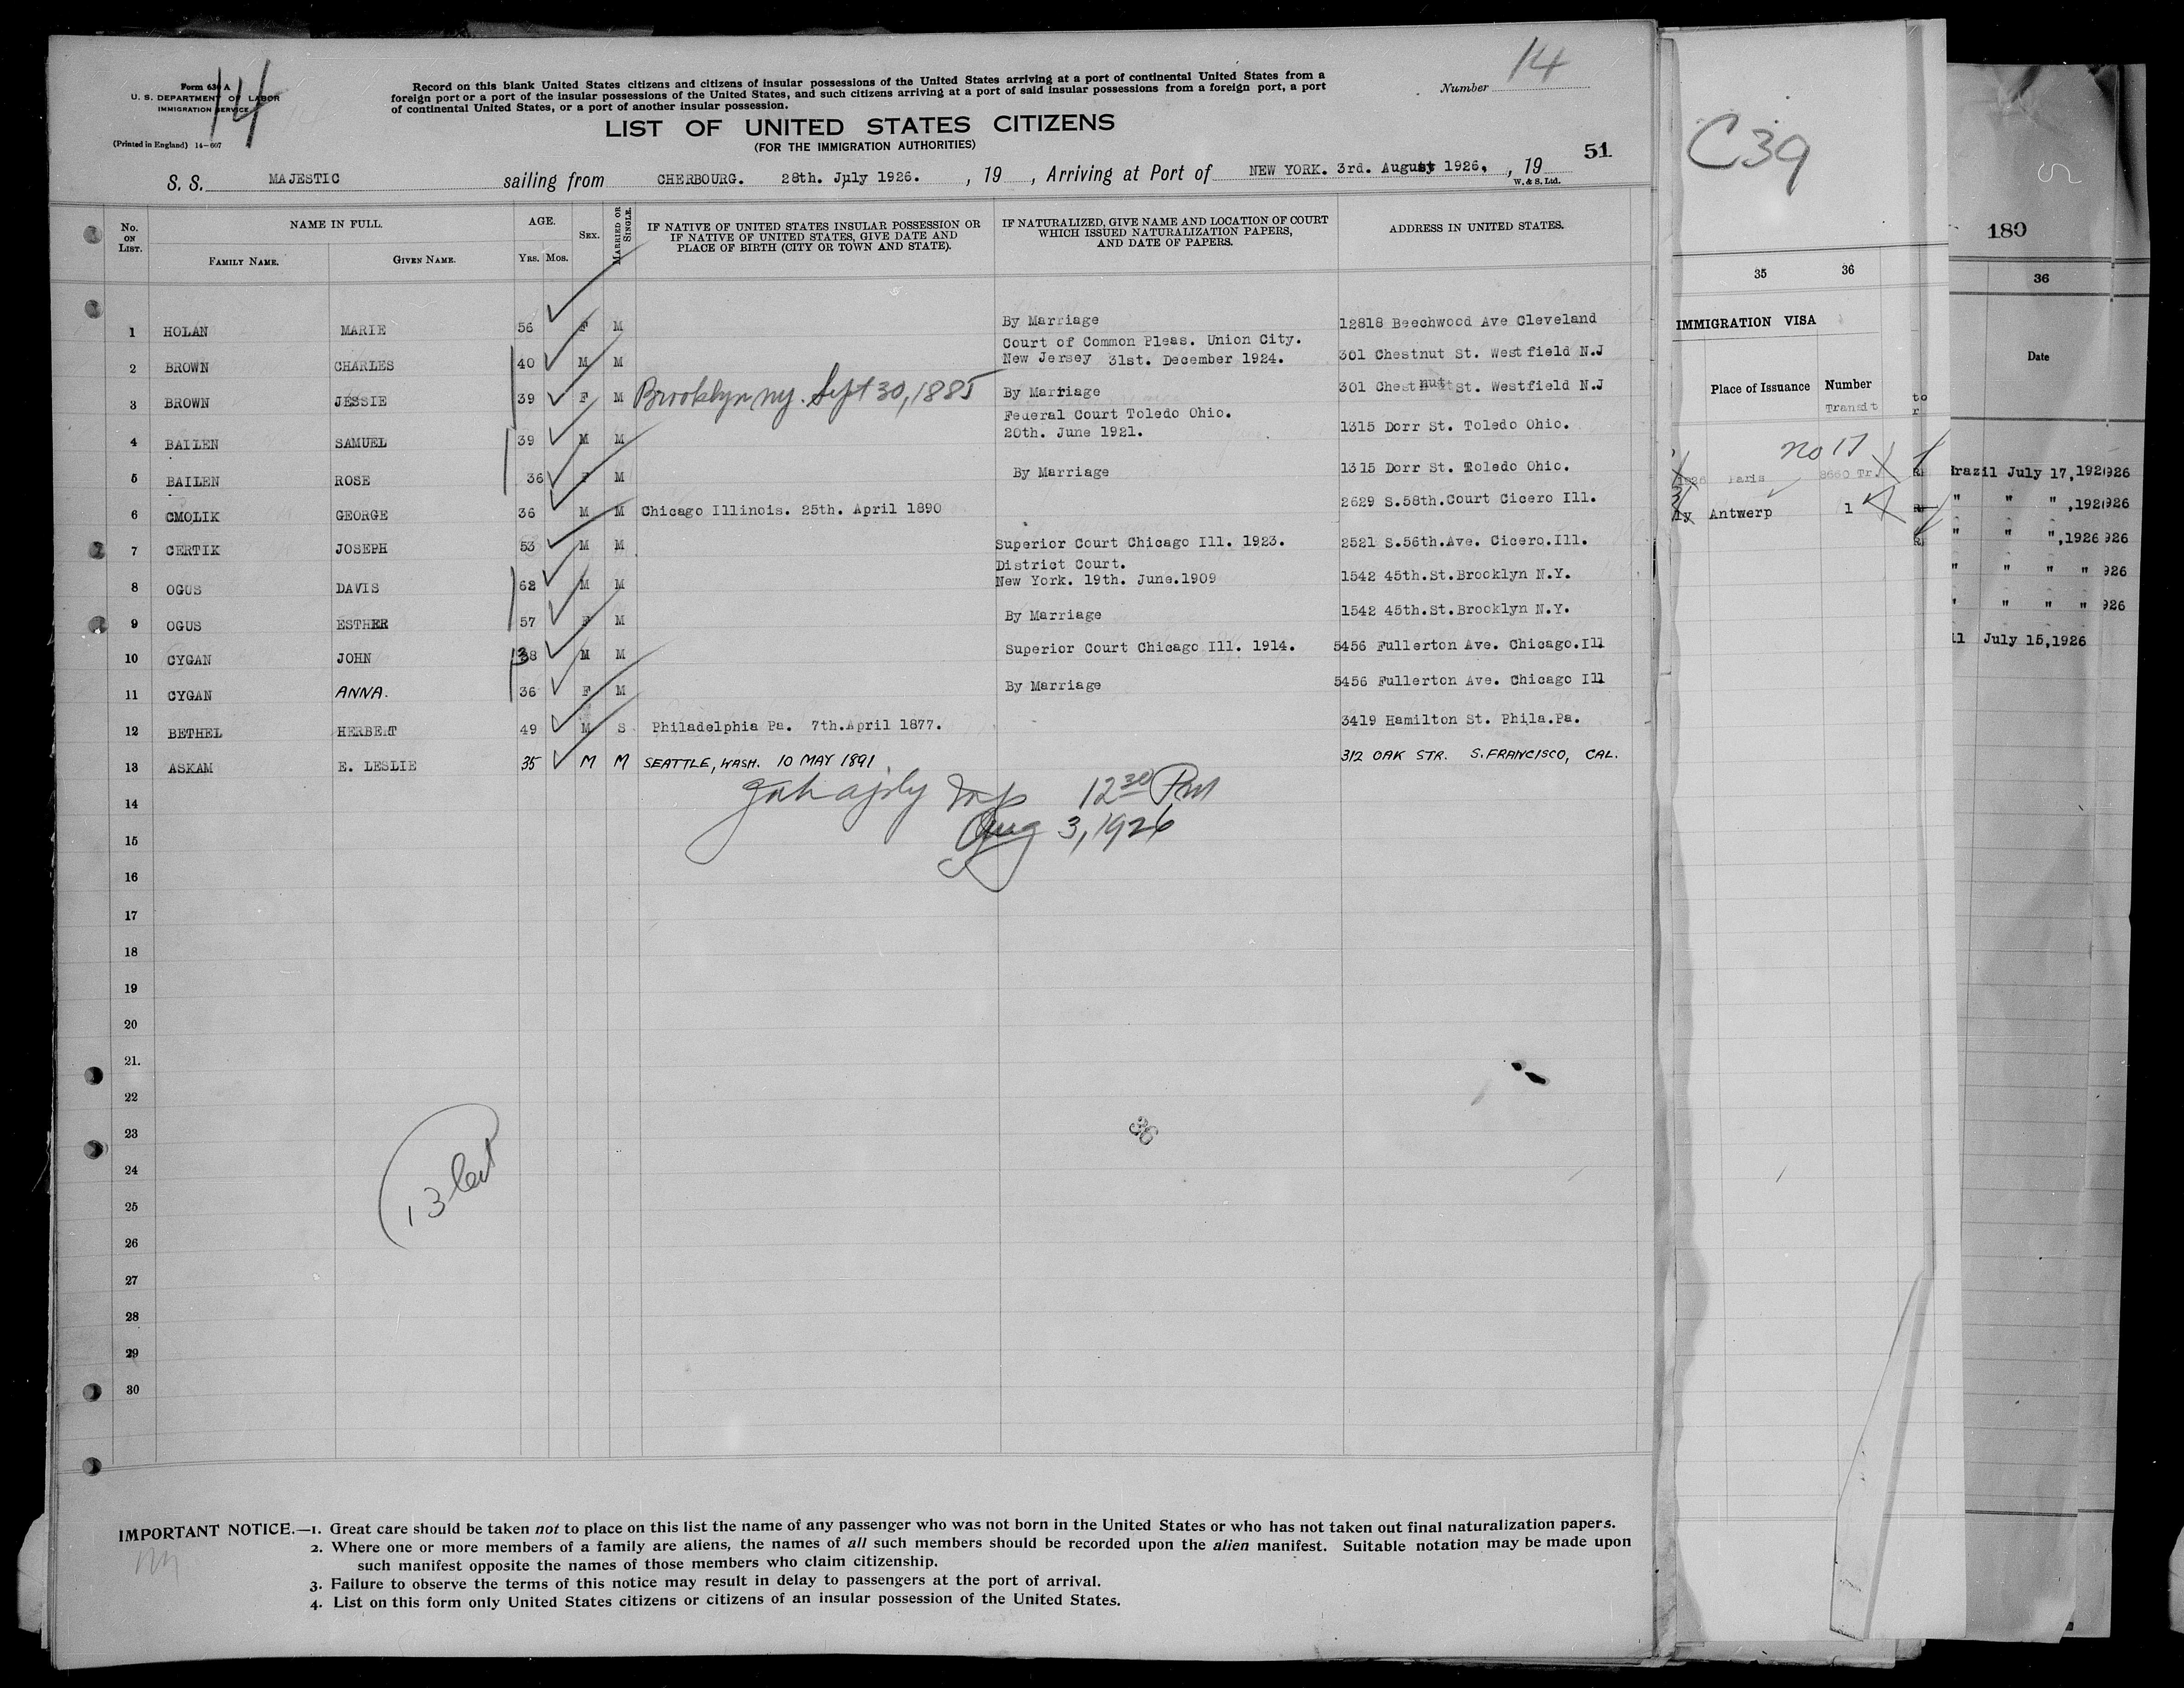 14
Form 630 A
U. S. DEPARTMENT OF LABOR
IMMIGRATION SERVICE
(Printed in England) 14-607
14
Record on this blank United States citizens and citizens of insular possessions of the United States arriving at a port of continental United States from a
foreign port or a port of the insular possessions of the United States, and such citizens arriving at a port of said insular possessions from a foreign port, a port
of continental United States, or a port of another insular possession.
Number
LIST OF UNITED STATES CITIZENS
(FOR THE IMMIGRATION AUTHORITIES)
51
S. S. MAJESTIC sailing from CHERBOURG. 28th. July 1926. , 19 , Arriving at Port of NEW YORK. 3rd. August 1926. , 19
W. & S. Ltd.
No. ON LIST. NAME IN FULL. FAMILY NAME. GIVEN NAME. AGE. YRS. MOS. SEX. MARRIED OR SINGLE. IF NATIVE OF UNITED STATES INSULAR POSSESSION OR IF NATIVE OF UNITED STATES, GIVE DATE AND PLACE OF BIRTH (CITY OR TOWN AND STATE). IF NATURALIZED, GIVE NAME AND LOCATION OF COURT WHICH ISSUED NATURALIZATION PAPERS, AND DATE OF PAPERS. ADDRESS IN UNITED STATES.
1 HOLAN MARIE 56 F M By Marriage 12818 Beechwood Ave Cleveland
2 BROWN CHARLES 40 M M Court of Common Pleas. Union City. New Jersey 31st. December 1924. 301 Chestnut St. Westfield N.J
3 BROWN JESSIE 39 F M Brooklyn ny. Sept 30, 1885 By Marriage 301 Chestnut St. Westfield N.J
4 BAILEN SAMUEL 39 M M Federal Court Toledo Ohio. 20th. June 1921. 1315 Dorr St. Toledo Ohio.
5 BAILEN ROSE 36 F M By Marriage 1315 Dorr St. Toledo Ohio.
6 CMOLIK GEORGE 36 M M Chicago Illinois. 25th. April 1890 2629 S.58th.Court Cicero Ill.
7 CERTIK JOSEPH 53 M M Superior Court Chicago Ill. 1923. 2521 S.56th.Ave. Cicero.Ill.
8 OGUS DAVIS 62 M M District Court. New York. 19th. June.1909 1542 45th.St.Brooklyn N.Y.
9 OGUS ESTHER 57 F M By Marriage 1542 45th.St.Brooklyn N.Y.
10 CYGAN JOHN 38 M M Superior Court Chicago Ill. 1914. 5456 Fullerton Ave. Chicago.Ill
11 CYGAN ANNA. 36 F M By Marriage 5456 Fullerton Ave. Chicago Ill
12 BETHEL HERBERT 49 M S Philadelphia Pa. 7th.April 1877. 3419 Hamilton St. Phila.Pa.
13 ASKAM E. LESLIE 35 M M SEATTLE, WASH. 10 MAY 1891 312 OAK STR. S.FRANCISCO, CAL.
14
12 30 Pm
15
Aug 3, 1926
16
17
18
19
20
21.
22
23
36
24
13
25
26
27
28
29
30
IMPORTANT NOTICE.—1. Great care should be taken not to place on this list the name of any passenger who was not born in the United States or who has not taken out final naturalization papers.
2. Where one or more members of a family are aliens, the names of all such members should be recorded upon the alien manifest. Suitable notation may be made upon
such manifest opposite the names of those members who claim citizenship.
3. Failure to observe the terms of this notice may result in delay to passengers at the port of arrival.
4. List on this form only United States citizens or citizens of an insular possession of the United States.
C39
35 36
IMMIGRATION VISA
Place of Issuance Number
Transit
no 17
Paris 8660 Tr.
Antwerp 1
to
r
180
36
Date
Brazil July 17, 1926
" " " ,192
" " ",1926
" " " " 926
" " " 926
il July 15,1926